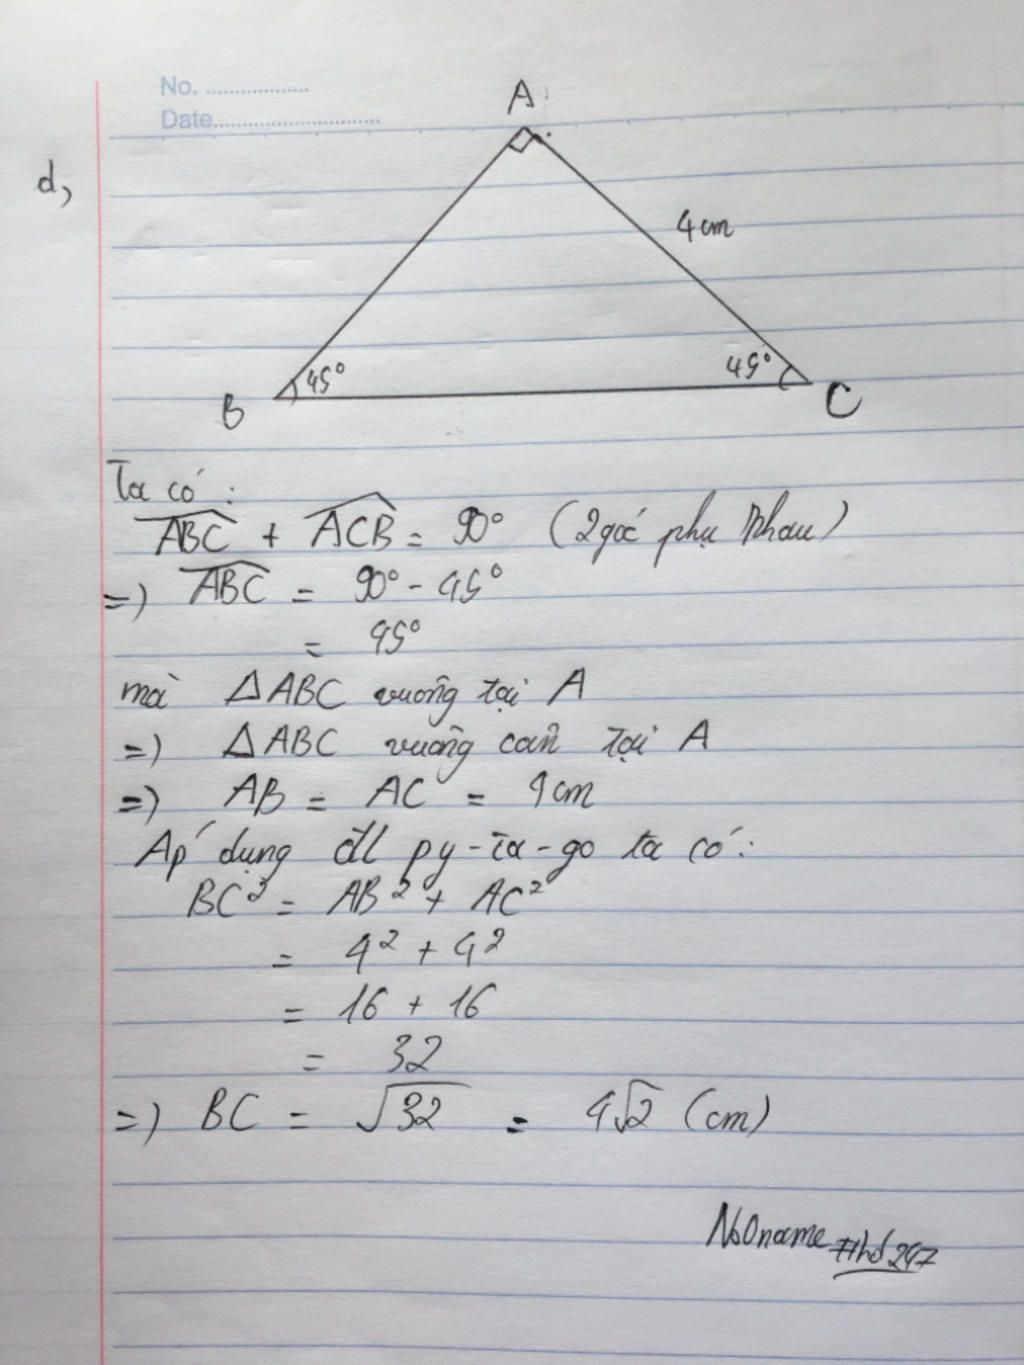 No. ..................
Date..............................
d,
A
4cm
45°
45°
B
C
Ta có :
\widehat{ABC} + \widehat{ACB} = 90° (2 góc phụ nhau)
=) \widehat{ABC} = 90° - 45°
= 45°
mà ΔABC vuông tại A
=) ΔABC vuông cân tại A
=) AB = AC = 4cm
Áp dụng đl py-ta-go ta có :
BC² = AB² + AC²
= 4² + 4²
= 16 + 16
= 32
=) BC = √32 = 4√2 (cm)
NoOname #hd247